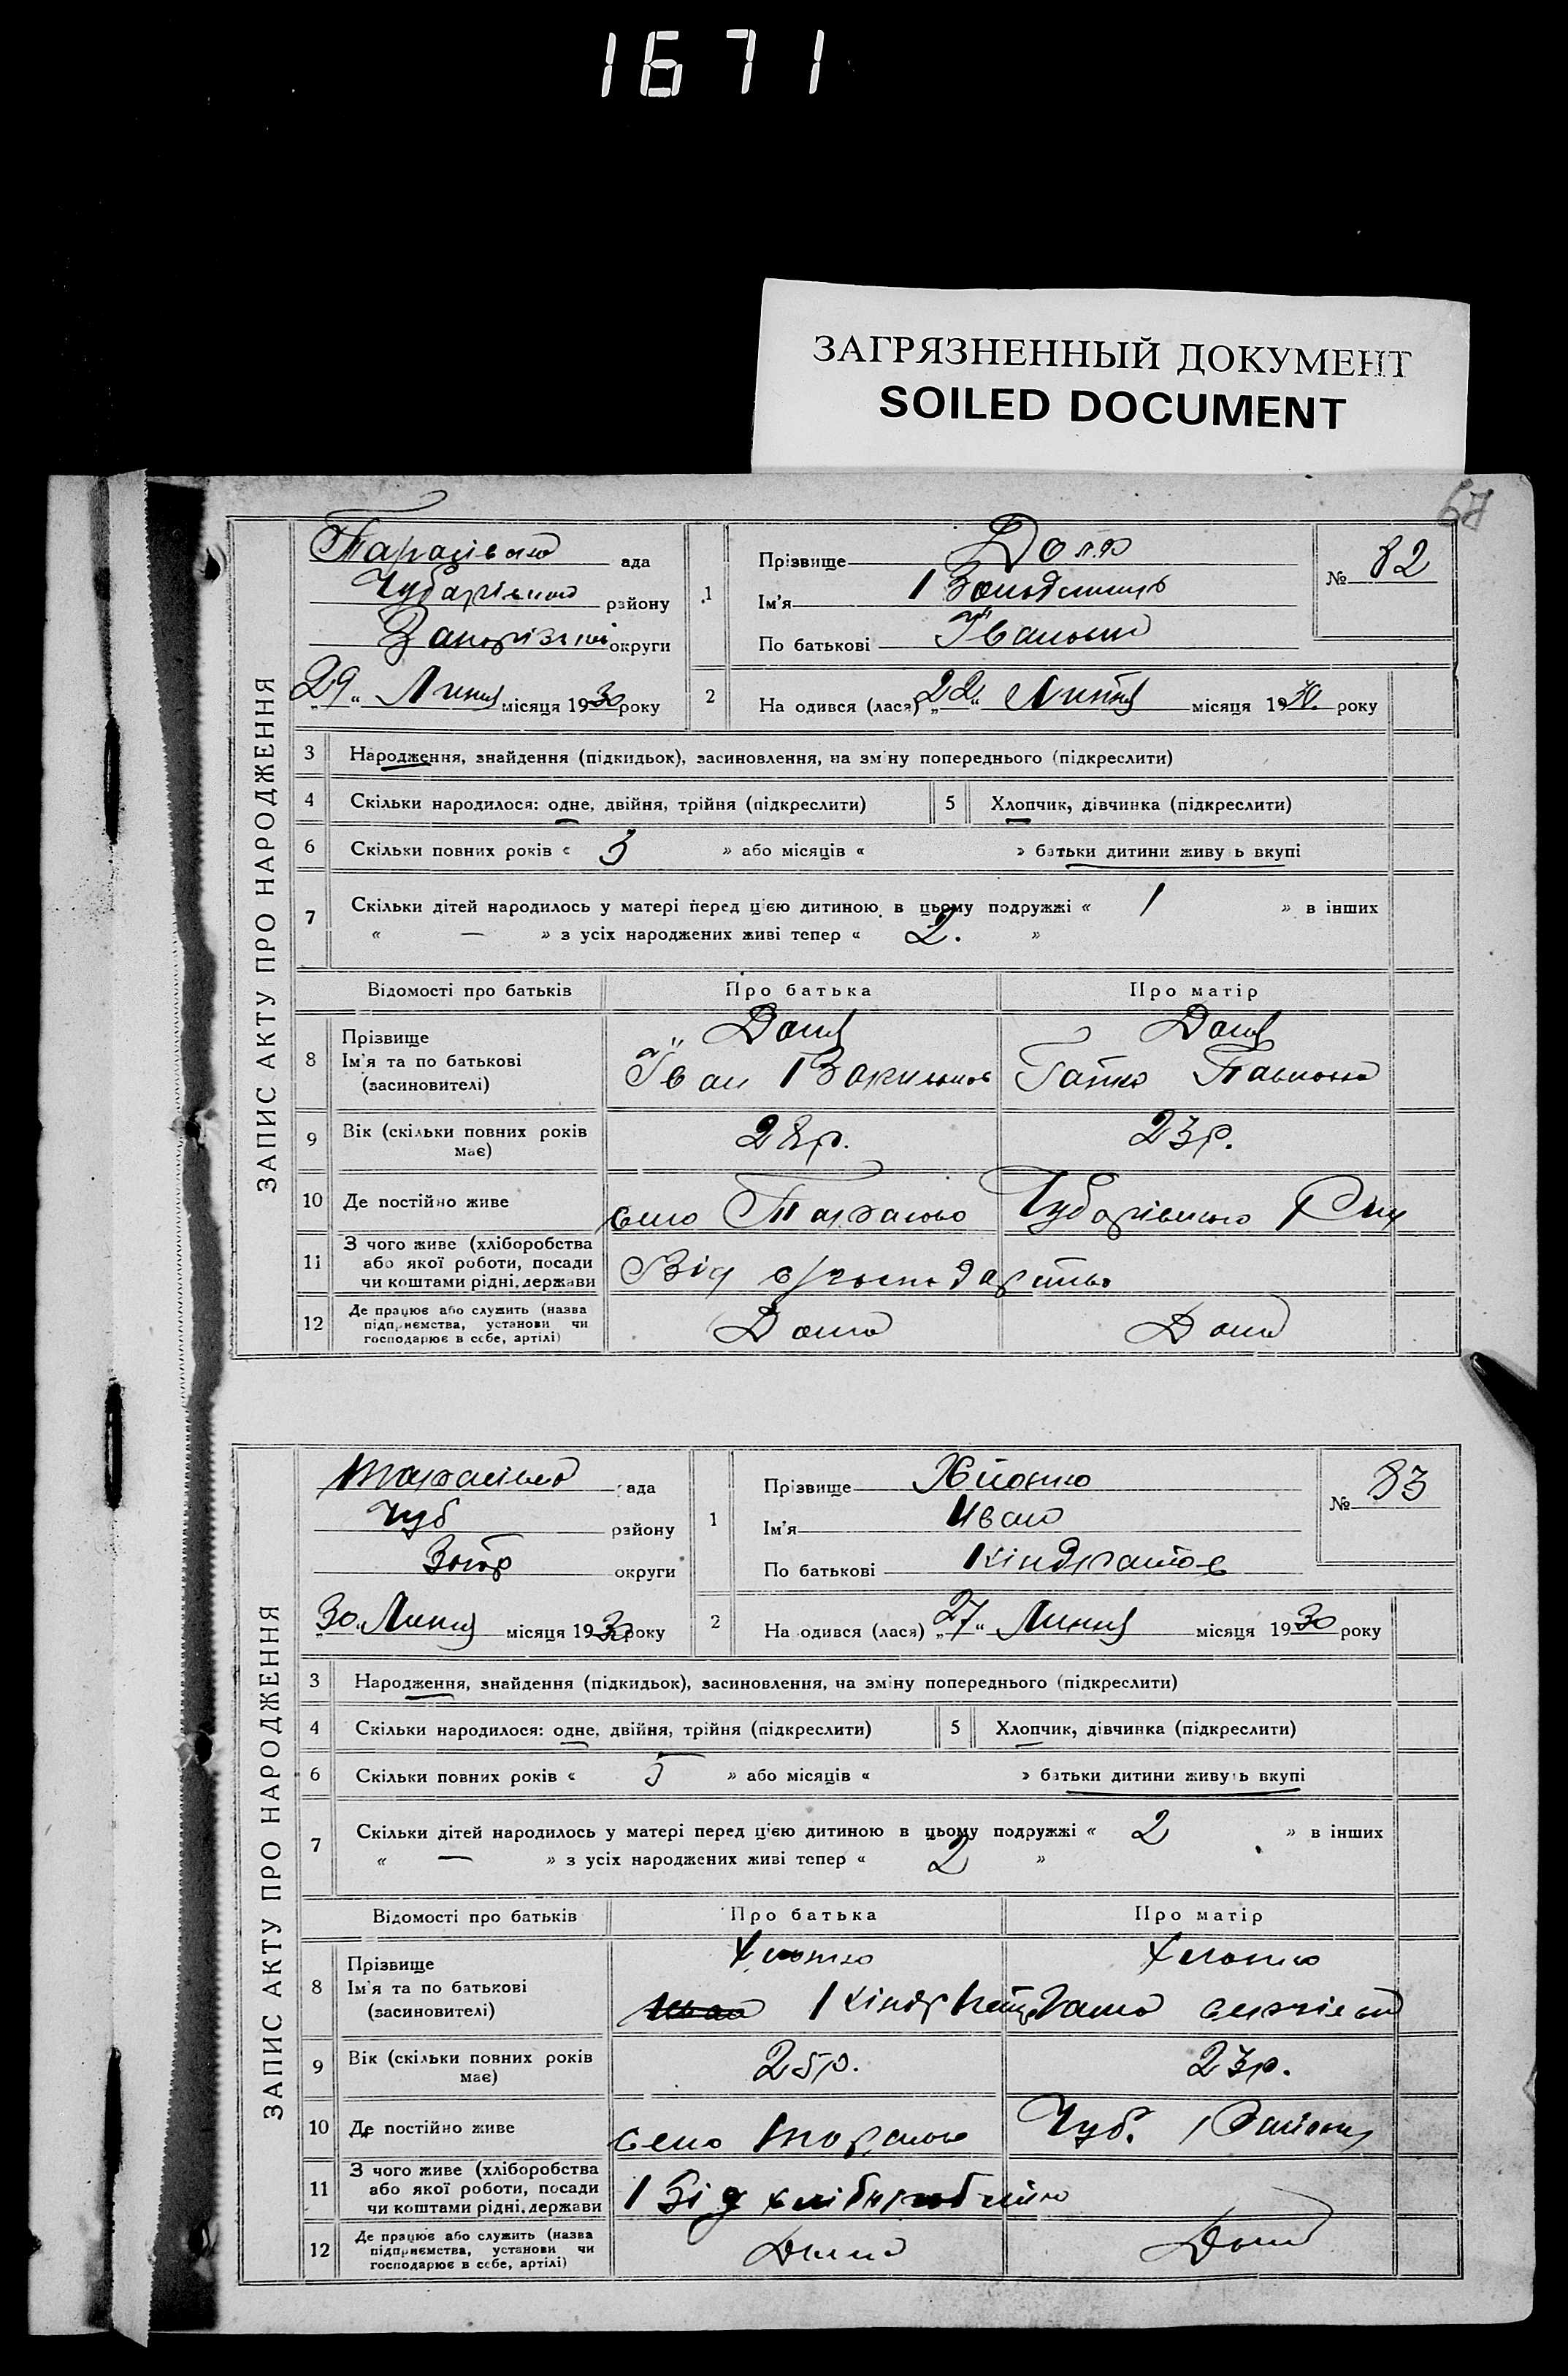 1671
ЗАГРЯЗНЕННЫЙ ДОКУМЕНТ
SOILED DOCUMENT
67
ЗАПИС АКТУ ПРО НАРОДЖЕННЯ
Тарасівська ада
Чубарівського району
Запорізької округи
29 Липня місяця 1930 року
1
Прізвище Доля
Ім'я
По батькові Іванович
№ 82
2 На одився (лася) „22“ Липня місяця 1930 року
3 Народження, знайдення (підкидьок), засиновлення, на зміну попереднього (підкреслити)
4 Скільки народилося: одне, двійня, трійня (підкреслити) 5 Хлопчик, дівчинка (підкреслити)
6 Скільки повних років « 3 » або місяців « » батьки дитини живу ь вкупі
7 Скільки дітей народилось у матері перед цією дитиною в цьому подружжі « 1 » в інших
« — » з усіх народжених живі тепер « 2. »
Відомості про батьків Про батька Про матір
8 Прізвище Доля Доля
Ім'я та по батькові Іван Павловна
(засиновителі)
9 Вік (скільки повних років має) 28р. 23р.
10 Де постійно живе село Тарасовка Чубарівського Р-ну
11 З чого живе (хліборобства або якої роботи, посади чи коштами рідні, держави Від с/господарства
12 Де працює або служить (назва підприємства, установи чи господарює в себе, артілі) Дома Дома
ЗАПИС АКТУ ПРО НАРОДЖЕННЯ
Тарасівська ада
Чуб району
Запор округи
30 Липня місяця 1930 року
1
Прізвище
Ім'я Иван
По батькові Кіндратов
№ 83
2 На одився (лася) „27“ Липня місяця 1930 року
3 Народження, знайдення (підкидьок), засиновлення, на зміну попереднього (підкреслити)
4 Скільки народилося: одне, двійня, трійня (підкреслити) 5 Хлопчик, дівчинка (підкреслити)
6 Скільки повних років « 5 » або місяців « » батьки дитини живуть вкупі
7 Скільки дітей народилось у матері перед цією дитиною в цьому подружжі « 2 » в інших
« — » з усіх народжених живі тепер « 2 »
Відомості про батьків Про батька Про матір
8 Прізвище
Ім'я та по батькові Кіндрат
(засиновителі)
9 Вік (скільки повних років має) 25р. 23р.
10 Де постійно живе село Тарасовка Чуб. Району
11 З чого живе (хліборобства або якої роботи, посади чи коштами рідні, держави Від хліборобства
12 Де працює або служить (назва підприємства, установи чи господарює в себе, артілі) Дома Дома